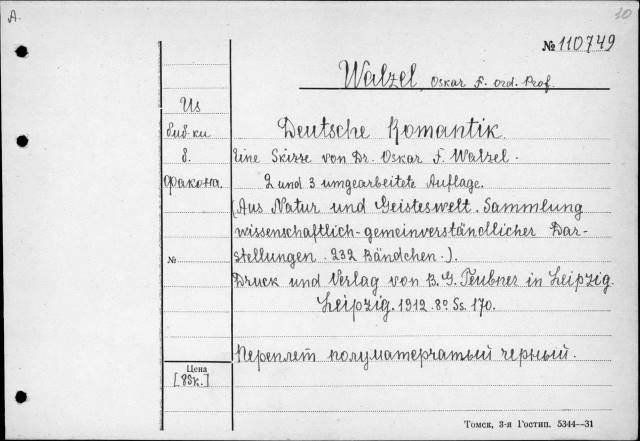 А.
10
№ 110749
Walzel, Oskar F. ord. Prof.
Из
биб-ки
в.
Факона.
Deutsche Romantik.
Eine Skizze von Dr. Oskar F. Walzel.
2 und 3 umgearbeitete Auflage.
(Aus Natur und Geisteswelt. Sammlung
wissenschaftlich-gemeinverständlicher Dar-
stellungen. 232 Bändchen.).
№
Druck und Verlag von B. G. Teubner in Leipzig.
Leipzig. 1912. 8° Ss. 170.
Переплет полуматерчатый черный.
Цена
[85к.]
Томск, 3-я Гостип. 5344—31